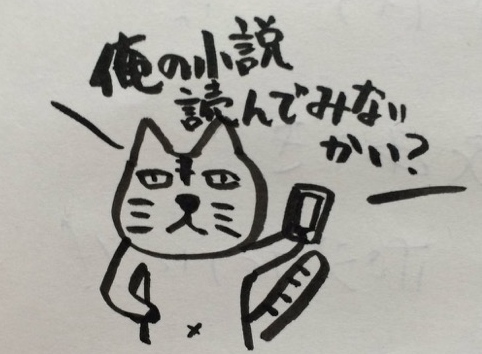 俺の小説
読んでみない
かい?